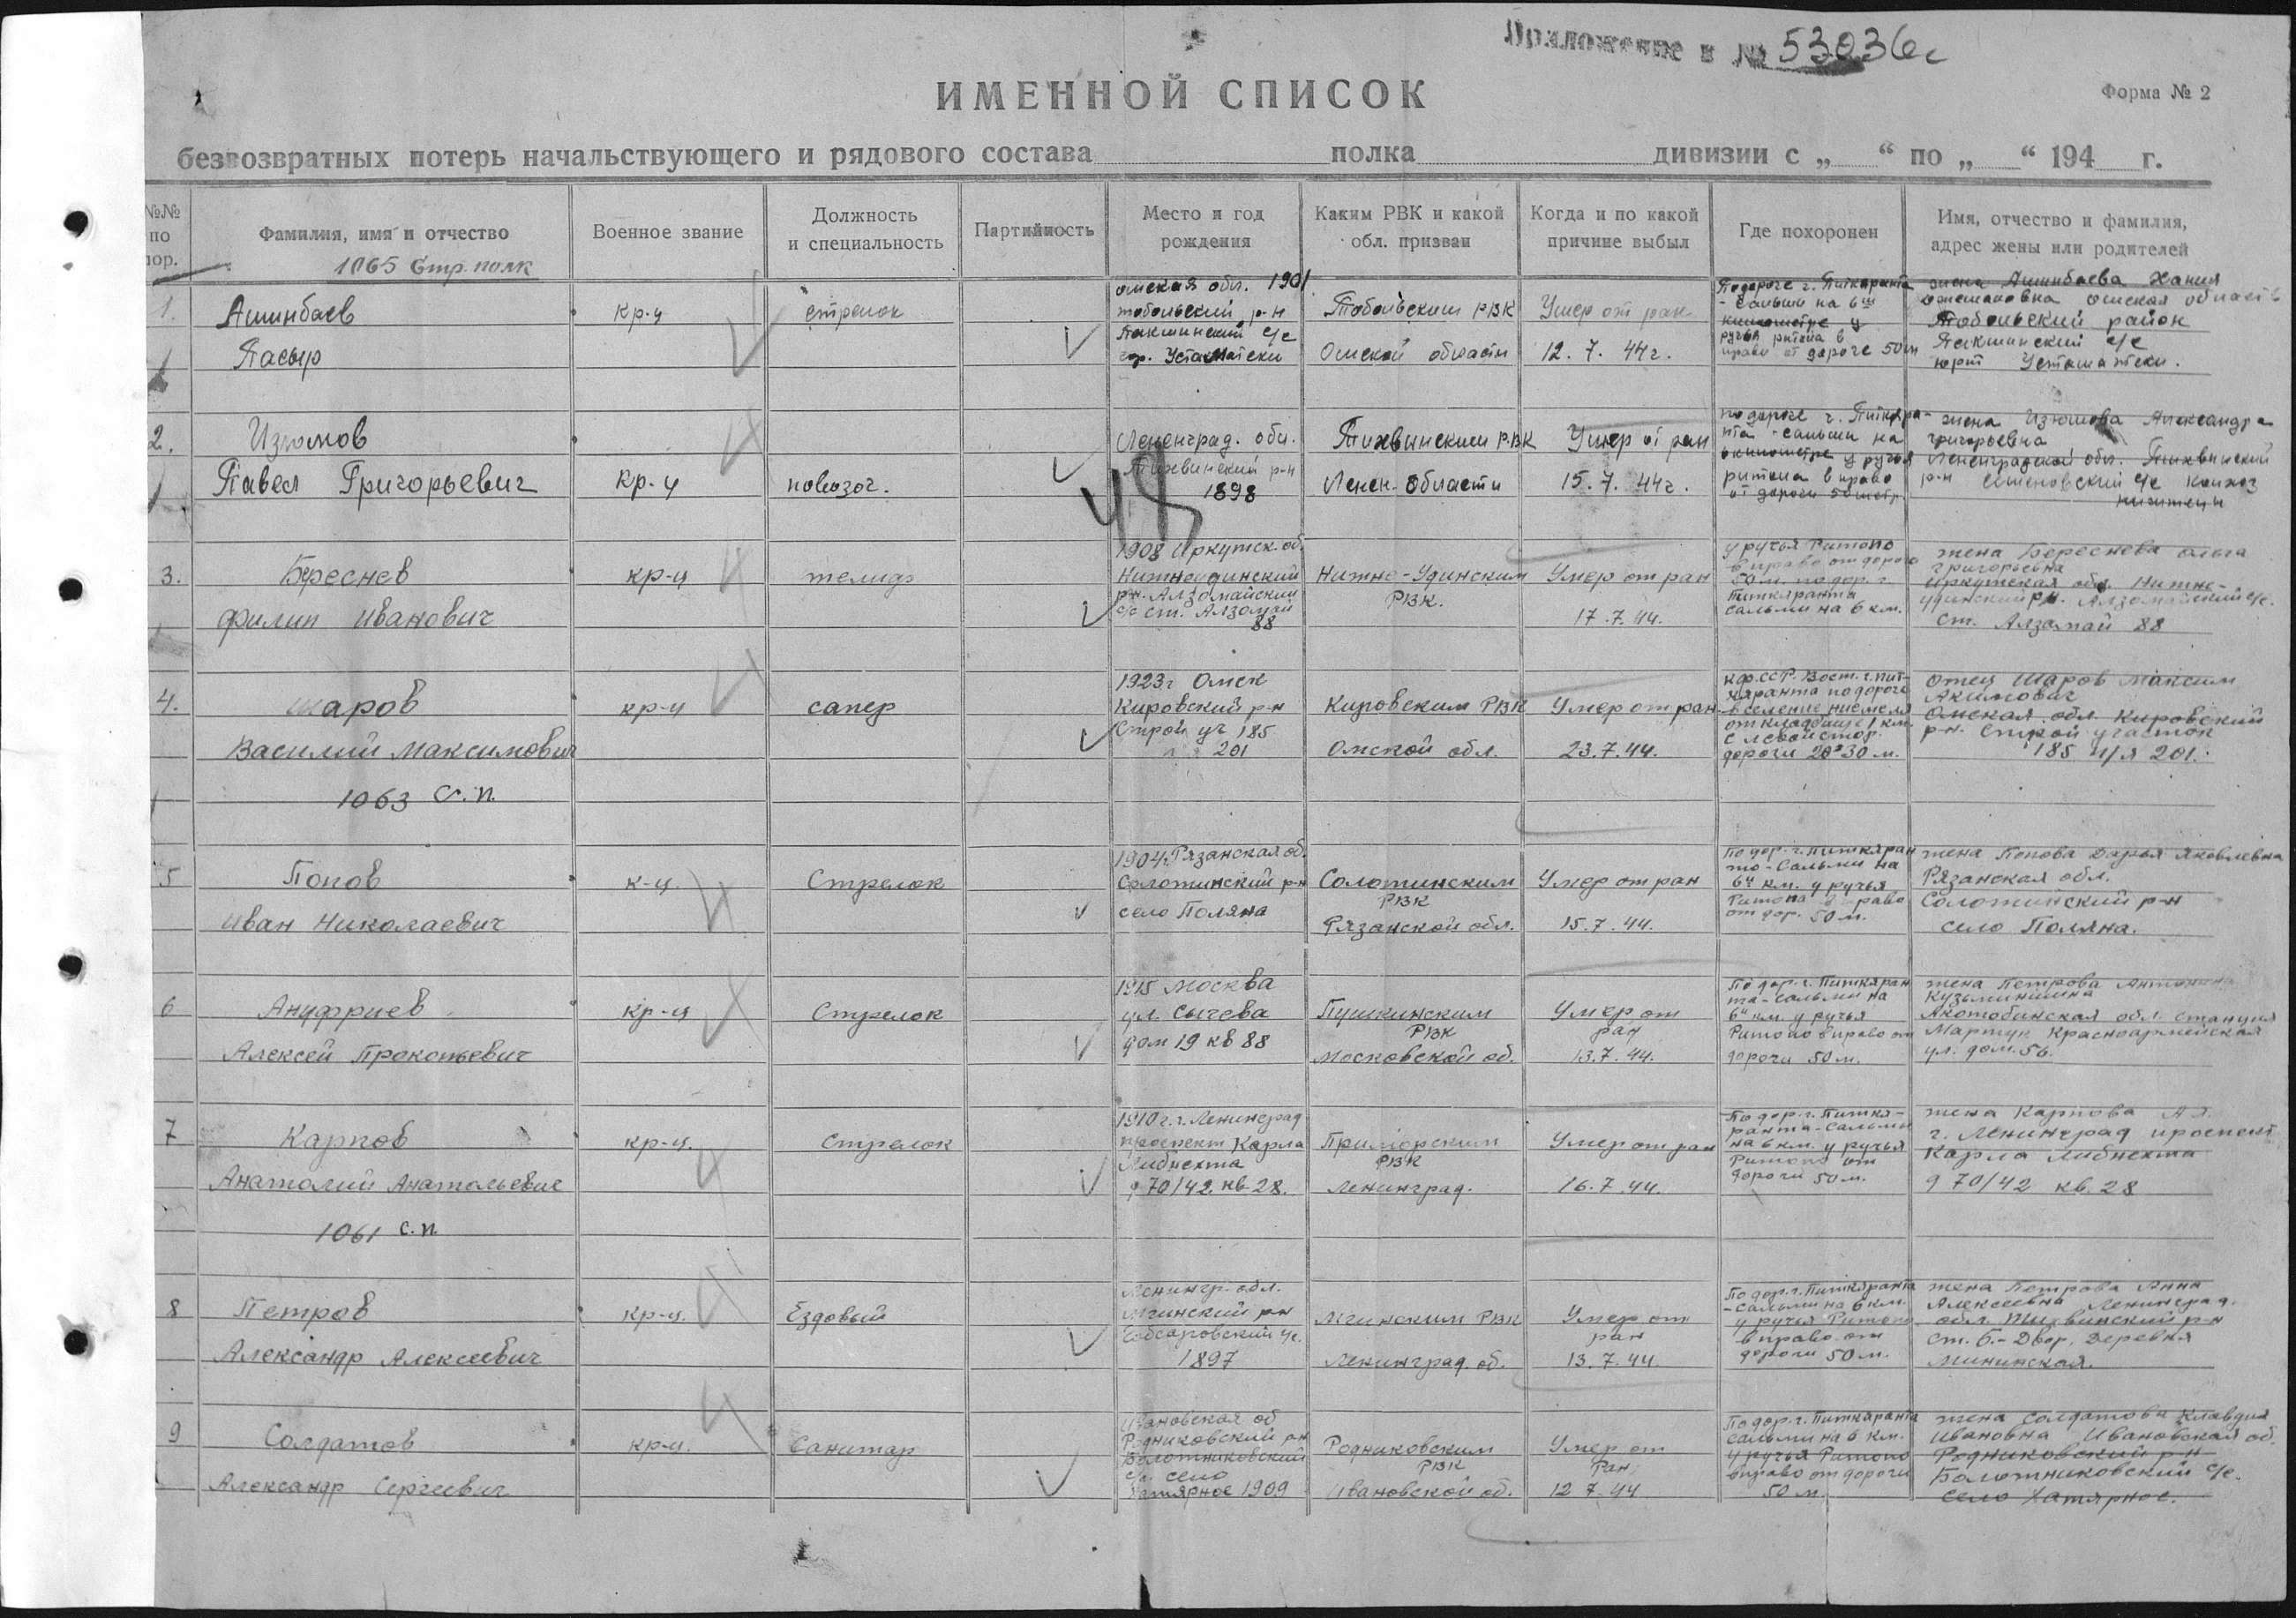 Приложение к № 53036с
ИМЕННОЙ СПИСОК
Форма № 2
безвозвратных потерь начальствующего и рядового состава полка дивизии с „ “ по „ “ 194 г.
№№ по пор.
Фамилия, имя и отчество
Военное звание
Должность и специальность
Партийность
Место и год рождения
Каким РВК и какой обл. призван
Когда и по какой причине выбыл
Где похоронен
Имя, отчество и фамилия, адрес жены или родителей
1065 Стр. полк
1.
Ашинбаев
Тасыр
кр-ц
стрелок
омская обл. 1901
тобольский р-н
с/с
Тобольским РВК
Омской области
Умер от ран
12. 7. 44г.
Подороге г. Питкяранта
- Сальми на 6ш
километре у
ручья в
право от дороге 50м
жена Ашинбаева Хания
омская область
Тобольский район
с/с
юрт
2.
Изюмов
Павел Григорьевич
кр-ц
повозоч.
Ленинград. обл.
Тихвинский р-н
1898
48
Тихвинским РВК
Ленен. Области
Умер от ран
15. 7. 44г.
по дороге г. Питкяра-
нта - Сальми на
6 километре у ручья
в право
от дороги 50 метр.
жена Изюмова Александра
григорьевна
Ленинградской обл. Тихвинский
р-н с/с колхоз
3.
Береснев
Филип Иванович
кр-ц
1908 Иркутск. об.
Нижнеудинский
р-н. Алзомайский
с/с ст. Алзомай
88
Нижне-Удинским
РВК.
Умер от ран
17. 7. 44.
у ручья Ритопо
в право от дороги
50 м. по дор. г.
Питкяранта
Сальми на 6 км.
жена Береснева Ольга
Григорьевна
Иркутская обл. Нижне-
удинский р-н. Алзомайский с/с.
ст. Алзомай 88
4.
Шаров
Василий Максимович
кр-ц
сапер
1923г Омск
Кировский р-н
Строй уч 185
201
Кировским РВК
Омской обл.
Умер от ран
23. 7. 44.
КФССР. Вост. г. Пит-
кяранта по дороге
в селение
от кладбище 1 км.
с левой стор.
дороги 20-30 м.
отец Шаров Максим
Акимович
Омская обл. Кировский
р-н. Строй участок
185 п/я 201.
1063 с.п.
5
Попов
Иван Николаевич
к-ц.
Стрелок
1904г Рязанская об.
Солотинский р-н
село Поляна
Солотинским
РВК
Рязанской обл.
Умер от ран
15. 7. 44.
По дор. г. Питкяран
та - Сальми на
6й км. у ручья
Ритопа в право
от дор. 50 м.
жена Попова Дарья Яковлевна
Рязанская обл.
Солотинский р-н
село Поляна.
6
Ануфриев
Алексей Прокопьевич
кр-ц
Стрелок
1915 Москва
ул. Сычева
дом 19 кв 88
Пушкинским
РВК
Московской об.
Умер от
ран
13. 7. 44.
По дор. г. Питкяран
та - Сальми на
6й км. у ручья
Ритопо в право от
дороги 50 м.
жена Петрова Антонина
Кузьминишна
Акотобинская обл. станция
Мартук Красноармейская
ул. дом. 56.
7
Карпов
Анатолий Анатольевич
кр-ц.
Стрелок
1910г. г. Ленинград
проспект Карла
Либнехта
д 70/42. кв. 28.
Приморским
РВК
Ленинград.
Умер от ран
16. 7. 44.
По дор. г. Питкя-
ранта - Сальми
на 6 км. у ручья
Ритопо от
дороги 50 м.
жена Карпова А.Я.
г. Ленинград проспект
Карла Либнехта
д 70/42 кв. 28
1061 с.п.
8
Петров
Александр Алексеевич
кр-ц.
Ездовый
Ленингр. обл.
Мгинский р-н
с/с.
1897
Мгинским РВК
Ленинград. об.
Умер от
ран
13. 7. 44.
По дор. г. Питкяранта
- Сальми на 6 км.
у ручья Ритопо
в право от
дороги 50 м.
жена Петрова Анна
Алексеевна Ленинград.
обл. Тихвинский р-н
ст. Б.-Двор. Деревня
Мининская.
9
Солдатов
Александр Сергеевич
кр-ц.
Санитар
Ивановская об
Родниковский р-н
Болотниковский
с/с. село
1909
Родниковским
РВК
Ивановской об.
Умер от
Ран
12 7. 44
По дор. г. Питкяранта
Сальми на 6 км.
у ручья Ритопо
вправо от дороги
50 м.
жена Солдатова Клавдия
Ивановна Ивановская об.
Родниковский р-н
Болотниковский с/с.
село Хатярное.